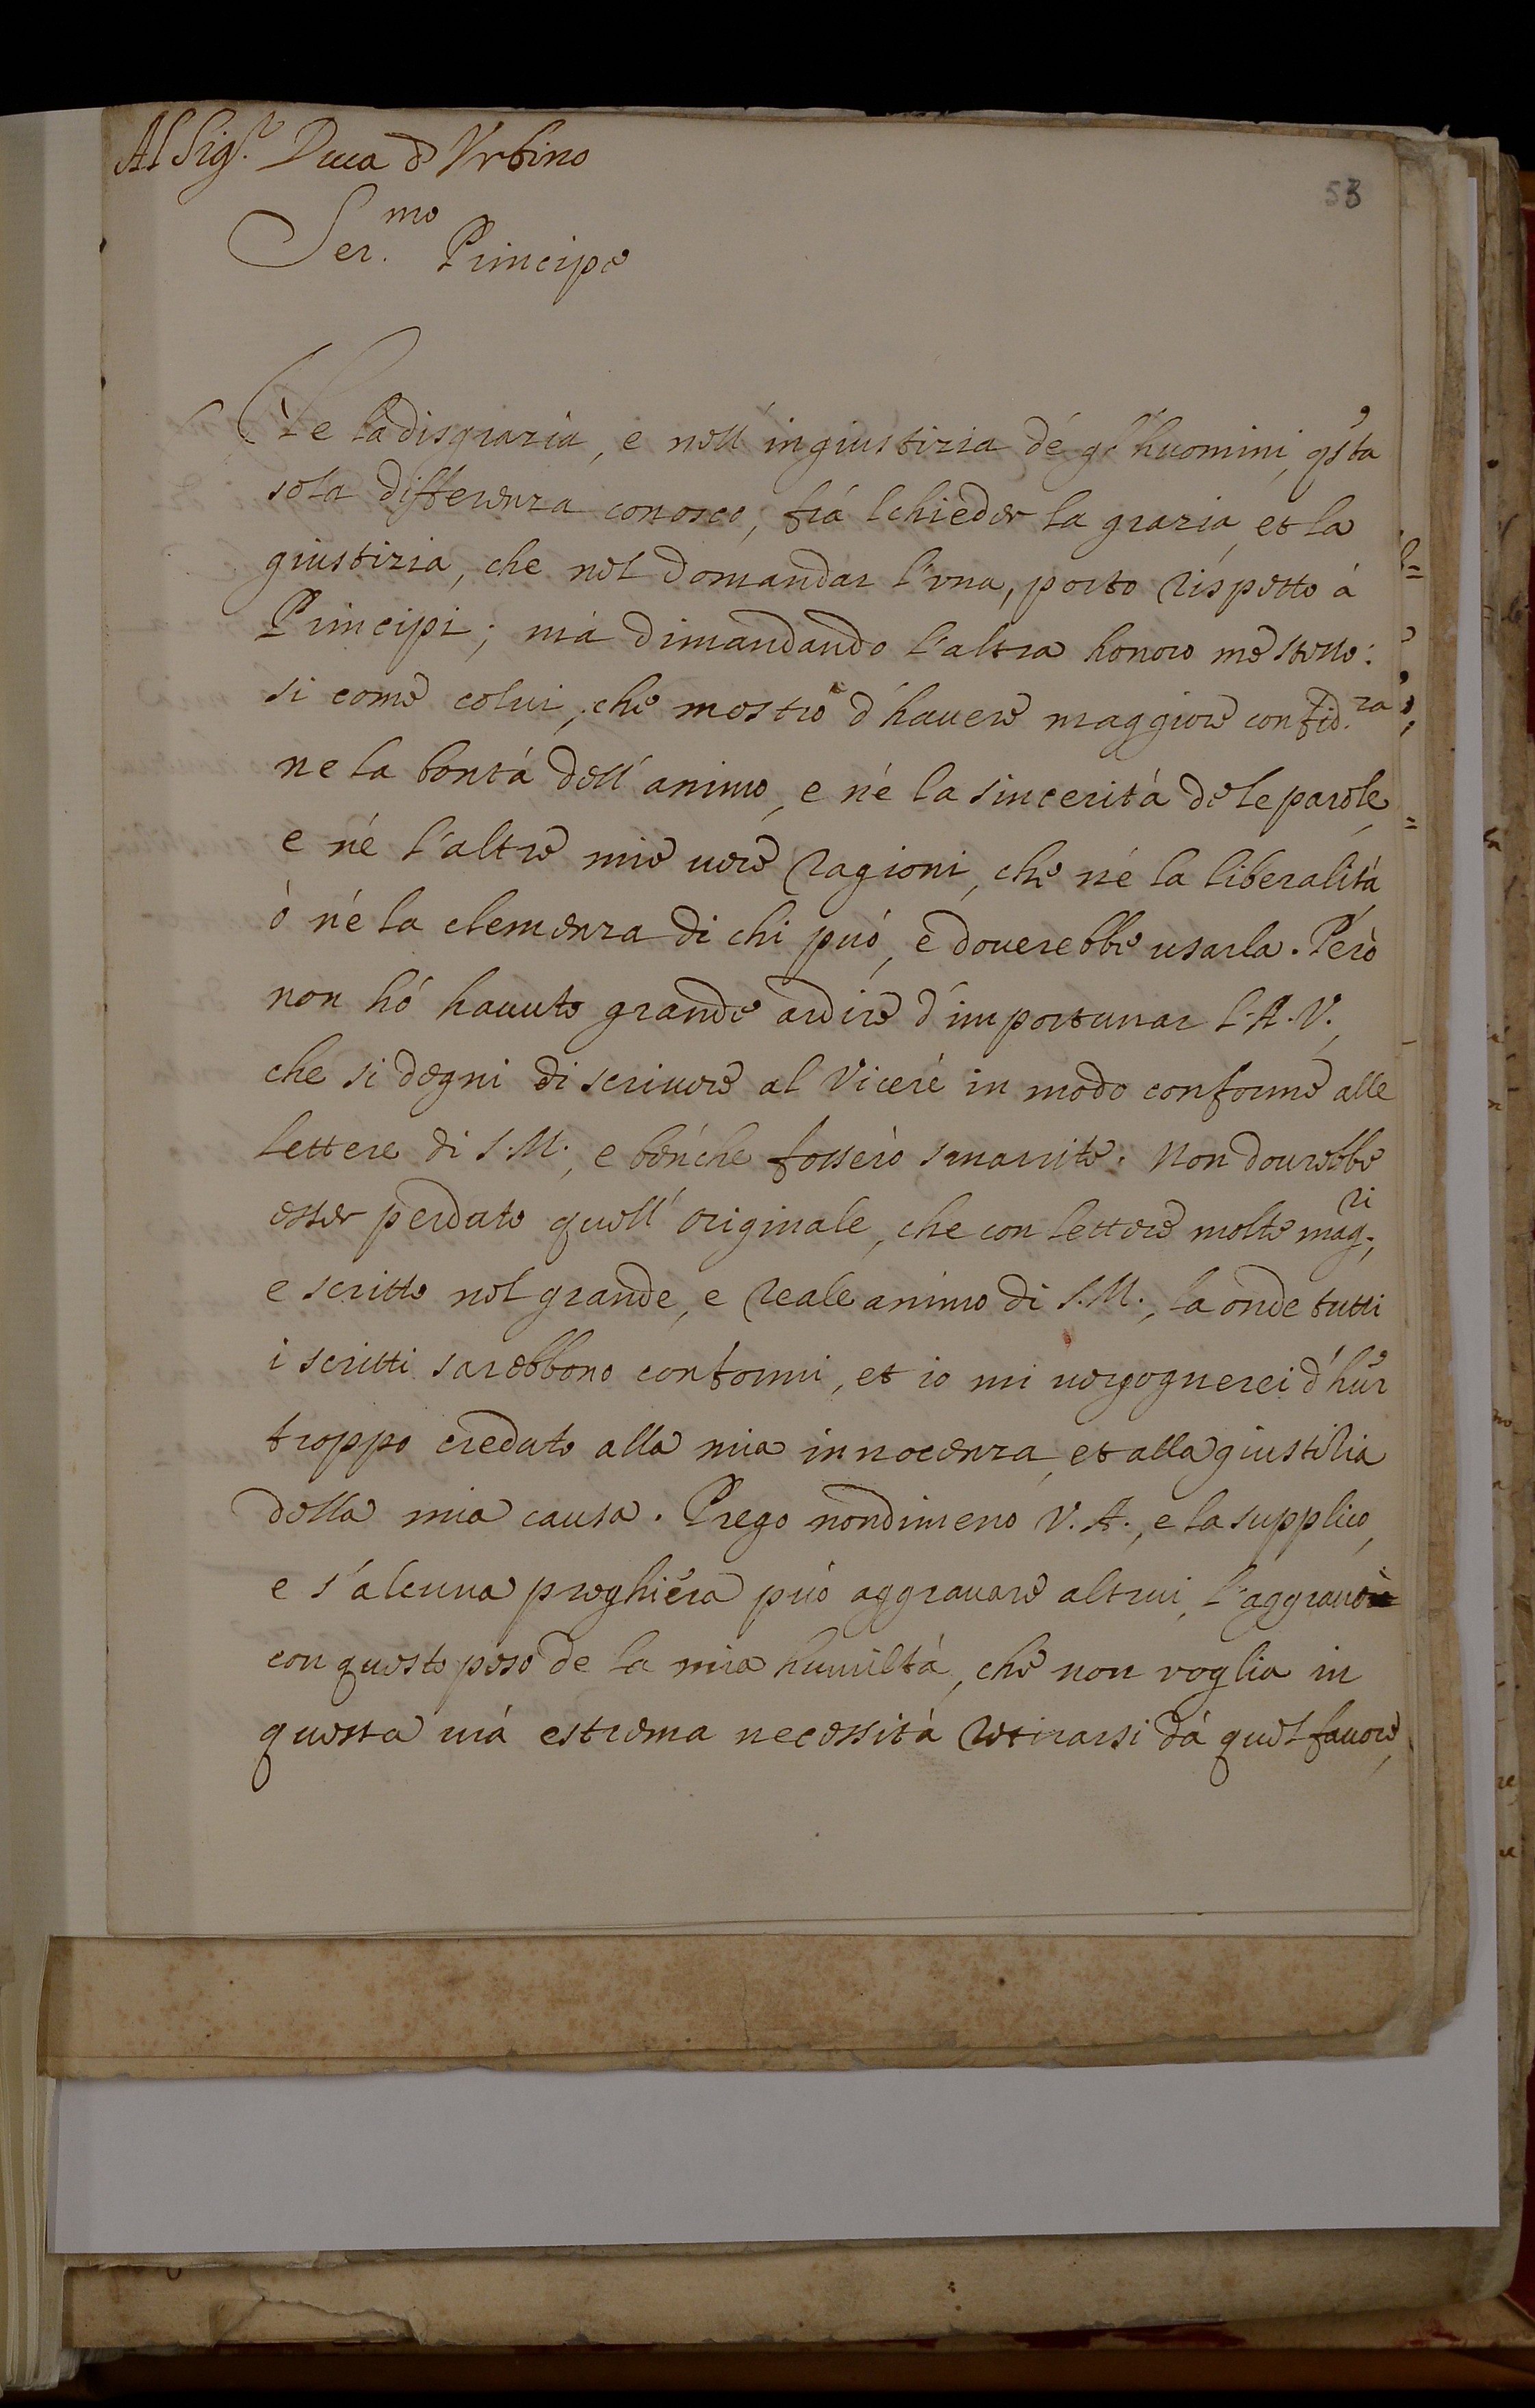 Al Sig.r Duca d' Urbino
53
Ser.mo Principe
Ne la disgrazia, e nell' ingiustizia dé gl' huomini, q'sta
sola differenza conosco, frà l chieder la grazia, et la
giustizia, che nel domandar l'una, porto rispetto à
Principi; mà dimandando l'altra honoro me stesso:
si come colui, che mostro d'hauere maggiore confid.za
ne la bontà dell' animo, e né la sincerità de le parole,
e né l'altre mie uere ragioni, che né la liberalità,
ò né la clemenza di chi può, e douerebbe usarla. Però
non hó hauuto grande ardire d'importunar l'A.V.,
che si degni di scriuere al Viceré in modo conforme alle
lettere di S.M., e benche fossero smarrite. Non dourebbe
esser perduto quell' originale, che con lettere molte mag.ri,
e scritto nel grande, e reale animo di S.M., la onde tutti
i scritti sarebbono conformi, et io mi uergognerei d'hu'r
troppo creduto alla mia innocenza, et alla giustitia
della mia causa. Prego nondimeno V.A., e la supplico,
e s'alcuna preghiera può aggrauare altrui, l'aggrauo
con questo peso de la mia humiltà, che non voglia in
questa mià estrema necessità retirarsi dà quel fauore,